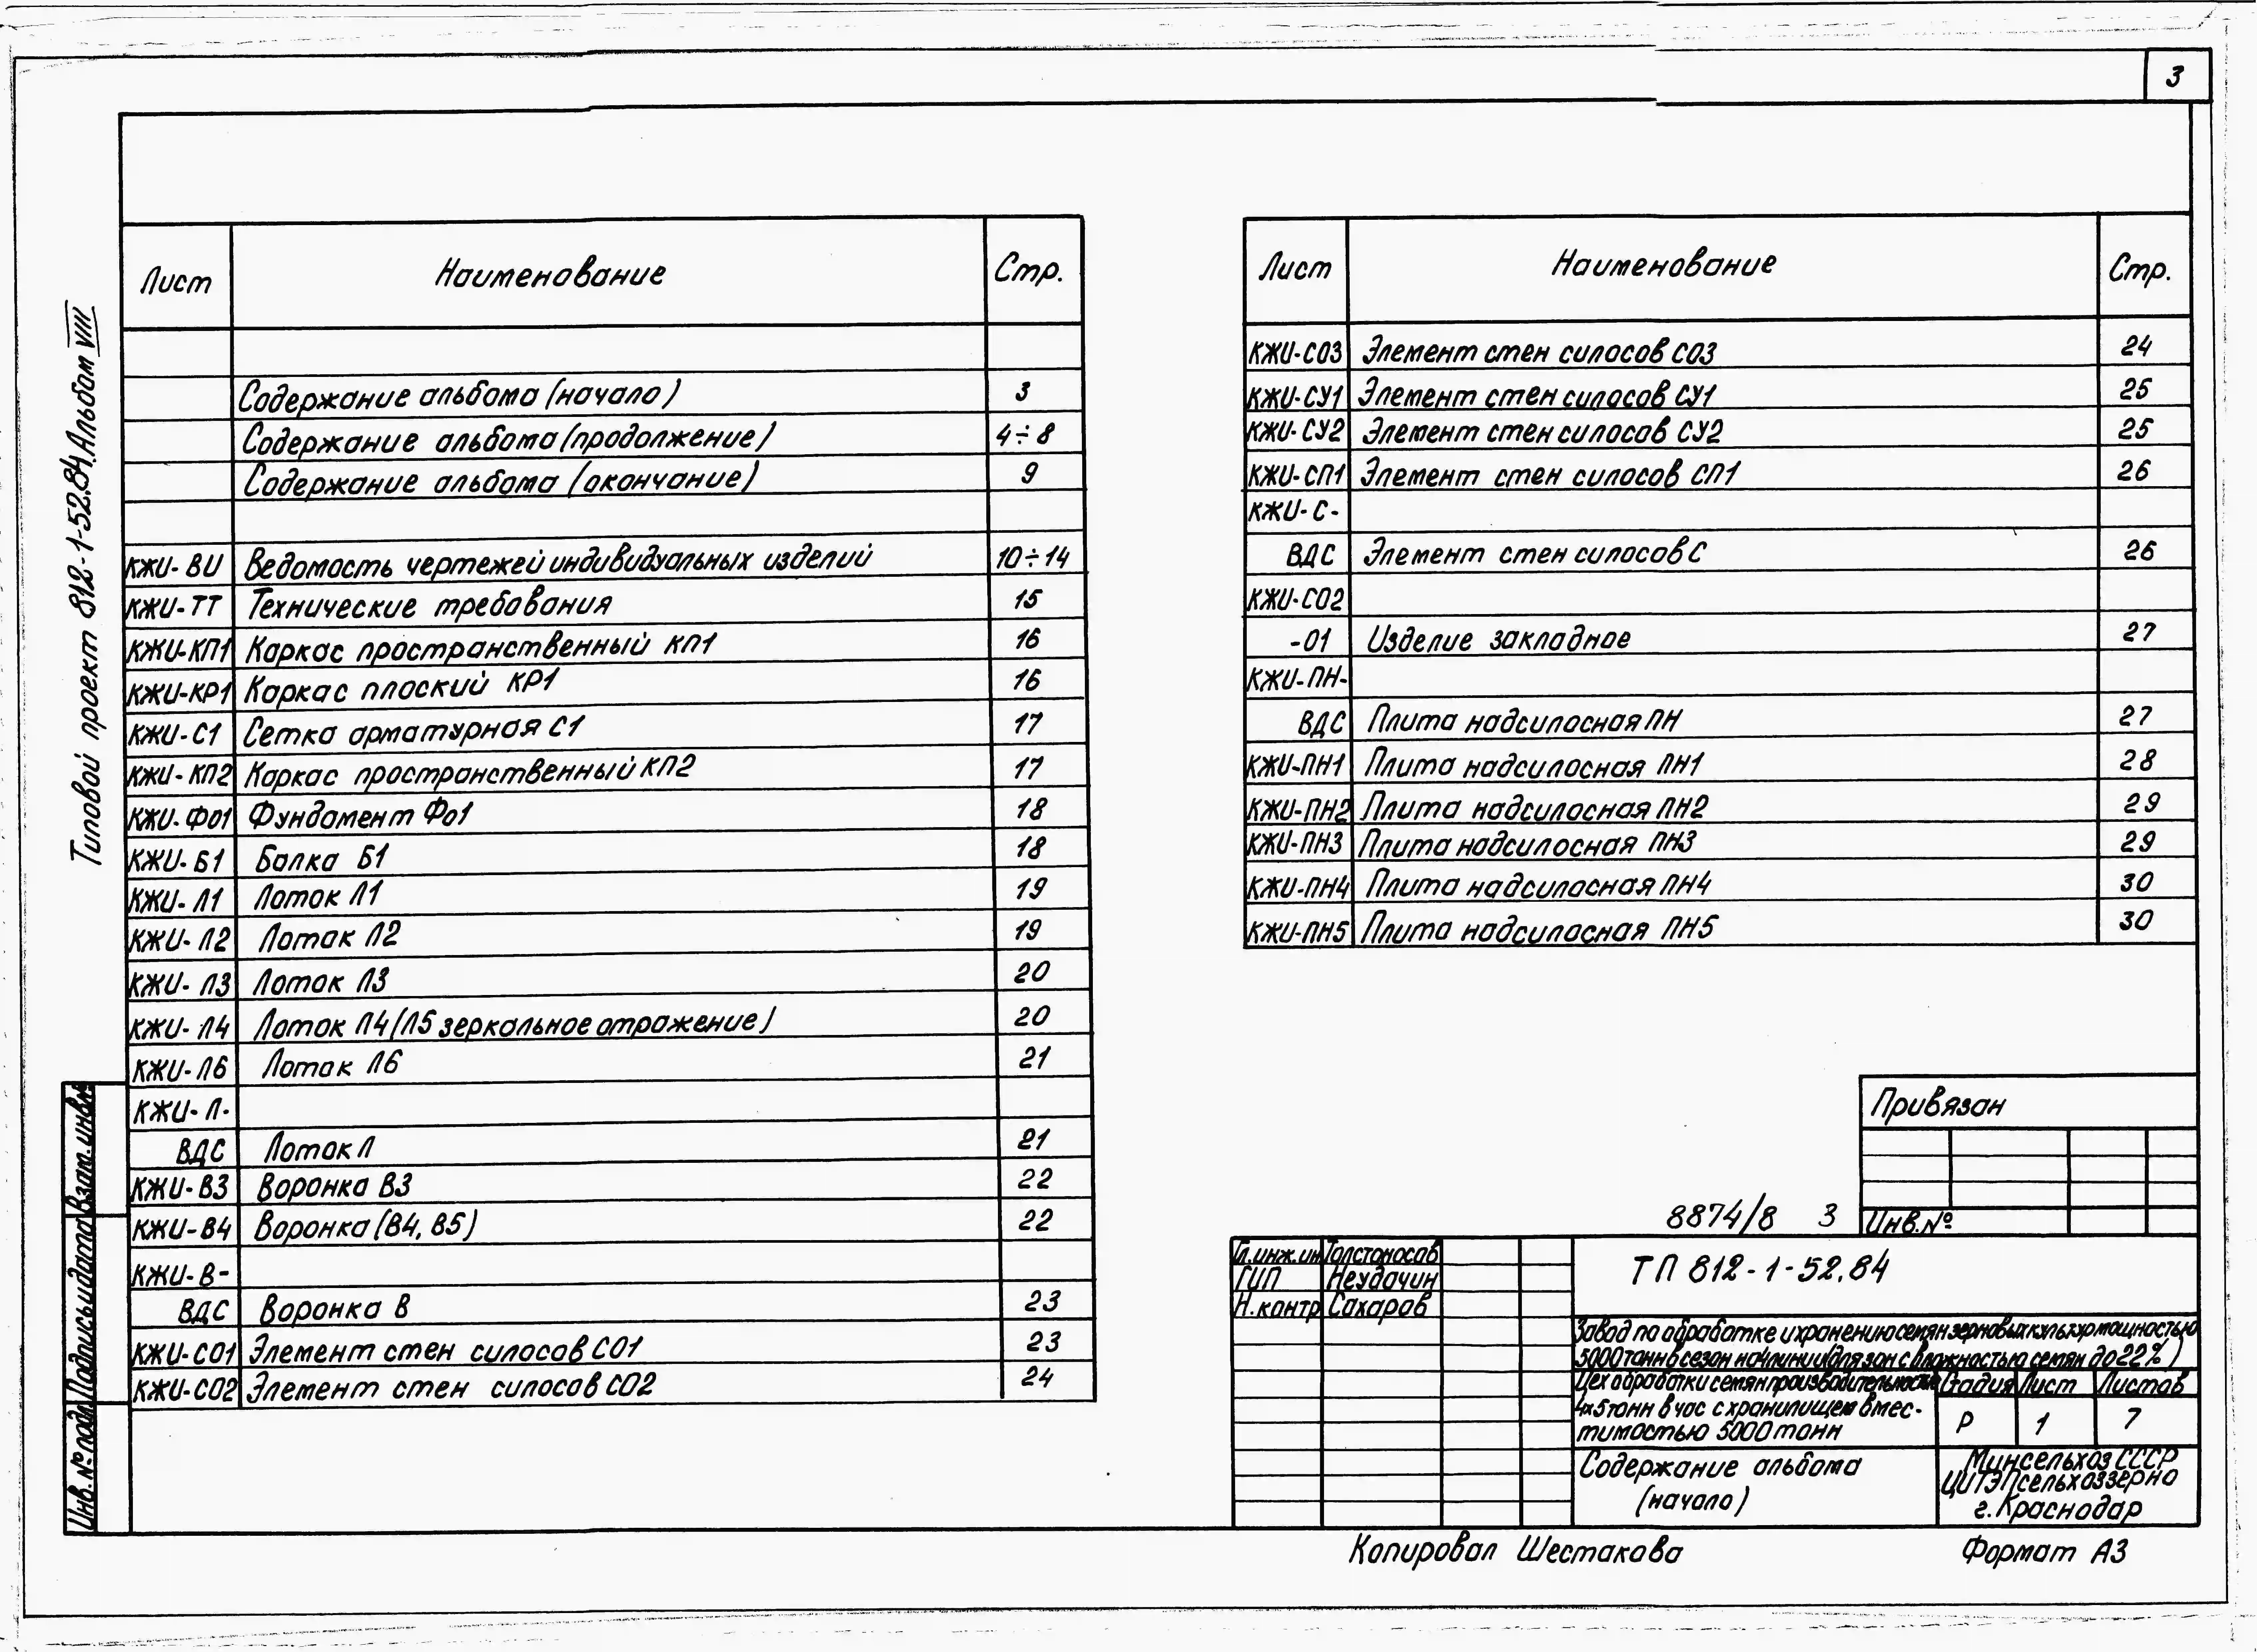 3
Типовой проект 812-1-52.84. Альбом VIII
Лист Наименование Стр.
Содержание альбома (начало) 3
Содержание альбома (продолжение) 4÷8
Содержание альбома (окончание) 9
КЖИ-ВИ Ведомость чертежей индивидуальных изделий 10÷14
КЖИ-ТТ Технические требования 15
КЖИ-КП1 Каркас пространственный КП1 16
КЖИ-КР1 Каркас плоский КР1 16
КЖИ-С1 Сетка арматурная С1 17
КЖИ-КП2 Каркас пространственный КП2 17
КЖИ-Фо1 Фундамент Фо1 18
КЖИ-Б1 Балка Б1 18
КЖИ-Л1 Лоток Л1 19
КЖИ-Л2 Лоток Л2 19
КЖИ-Л3 Лоток Л3 20
КЖИ-Л4 Лоток Л4 (Л5 зеркальное отражение) 20
КЖИ-Л6 Лоток Л6 21
КЖИ-Л-
ВДС Лоток Л 21
КЖИ-В3 Воронка В3 22
КЖИ-В4 Воронка (В4, В5) 22
КЖИ-В-
ВДС Воронка В 23
КЖИ-СО1 Элемент стен силосов СО1 23
КЖИ-СО2 Элемент стен силосов СО2 24
Лист Наименование Стр.
КЖИ-СО3 Элемент стен силосов СО3 24
КЖИ-СУ1 Элемент стен силосов СУ1 25
КЖИ-СУ2 Элемент стен силосов СУ2 25
КЖИ-СП1 Элемент стен силосов СП1 26
КЖИ-С-
ВДС Элемент стен силосов С 26
КЖИ-СО2
-01 Изделие закладное 27
КЖИ-ПН-
ВДС Плита надсилосная ПН 27
КЖИ-ПН1 Плита надсилосная ПН1 28
КЖИ-ПН2 Плита надсилосная ПН2 29
КЖИ-ПН3 Плита надсилосная ПН3 29
КЖИ-ПН4 Плита надсилосная ПН4 30
КЖИ-ПН5 Плита надсилосная ПН5 30
Привязан
Инв.№
8874/8 3
Гл.инж.ин Толстоносов
ГИП Неудачин
Н.контр Сахаров
ТП 812-1-52.84
Завод по обработке и хранению семян зерновых культур мощностью
5000 тонн в сезон на 4 линии (для зон с влажностью семян до 22%)
Цех обработки семян производительностью
4х5 тонн в час с хранилищем вмес-
тимостью 5000 тонн
Стадия Лист Листов
Р 1 7
Содержание альбома
(начало)
Минсельхоз СССР
ЦИТЭПсельхоззерно
г.Краснодар
Копировал Шестакова
Формат А3
Инв.№подл. Подпись и дата Взам.инв.№